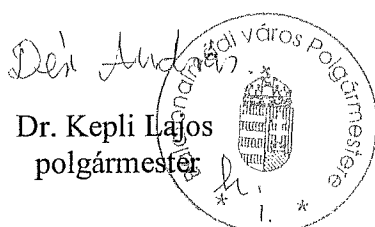 Dr. Kepli Lajos
polgármester
Balatonalmádi város Polgármestere
* 1. *